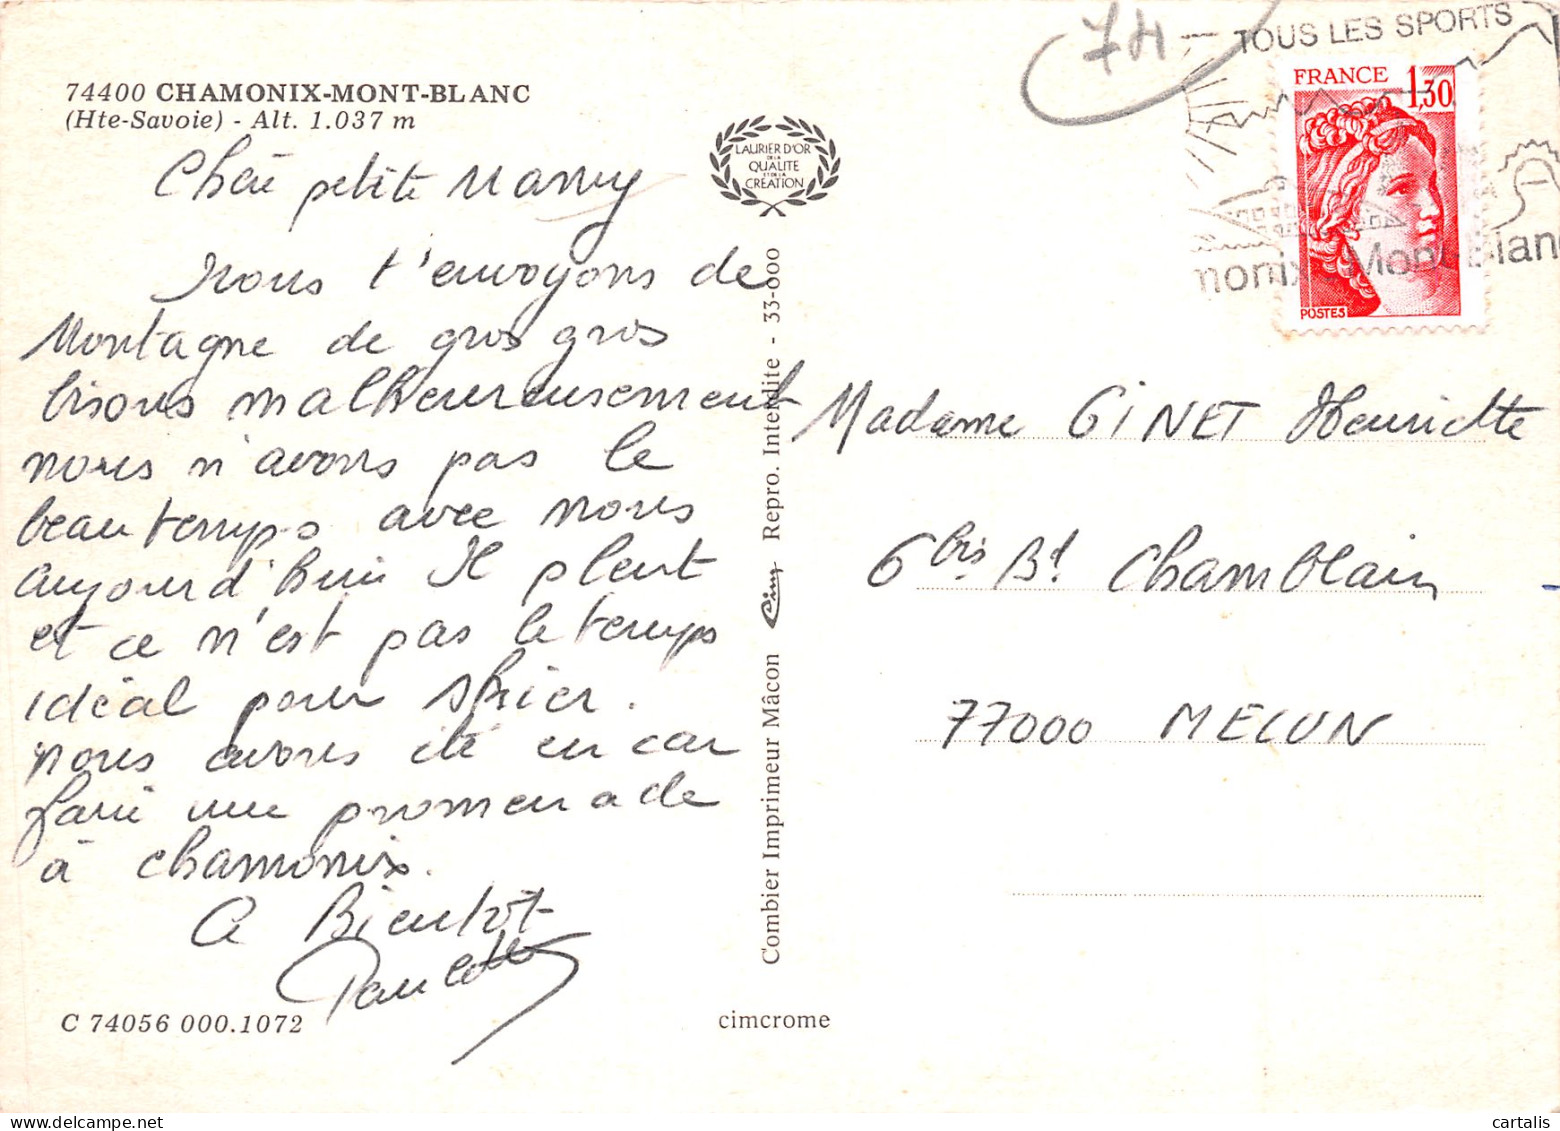 74400 CHAMONIX-MONT-BLANC
(Hte-Savoie) - Alt. 1.037 m
petite Mamy
Nous t'envoyons de
Montagne de gros gros
bisous malheureusement
nous n'avons pas le
beau temps avec nous
aujourd'hui Il pleut
et ce n'est pas le temps
idéal pour skier.
nous avons été en car
faire une promenade
à chamonix.
A Bientot
C 74056 000.1072
LAURIER D'OR
DE LA
QUALITE
ET DE LA
CREATION
Combier Imprimeur Mâcon Cim Repro. Interdite - 33-000
cimcrome
74
TOUS LES SPORTS
FRANCE 1,30
POSTES
monix Mont Blanc
Madame GINET Henriette
6 bis Bd Chamblain
77000 MELUN
cartalis
www.delcampe.net